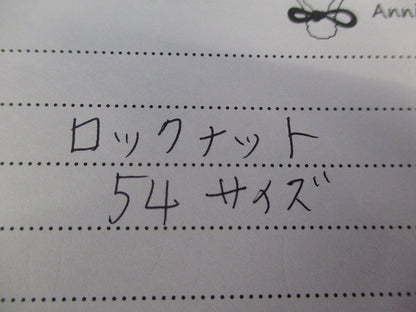 Anni
ロックナット
54 サイズ